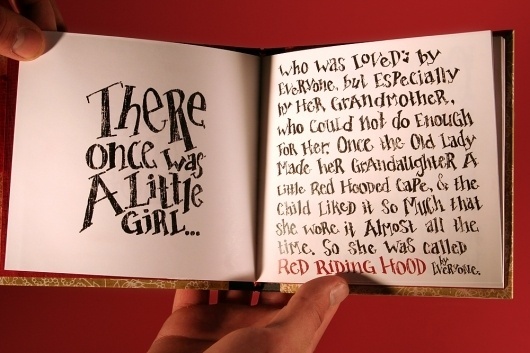 There
once was
A Little
GIRL...
who was LOVED by
EVERYone, but ESpecially
by HER GRandMOTHER,
who COULD not do Enough
FOR HER. Once the Old Lady
MADE HER GRAndaughtER A
Little Red Hooded Cape, & the
child LIKED it So Much that
she wore it Almost all the
time. So she was called
RED RIDING HOOD by EVERYone.